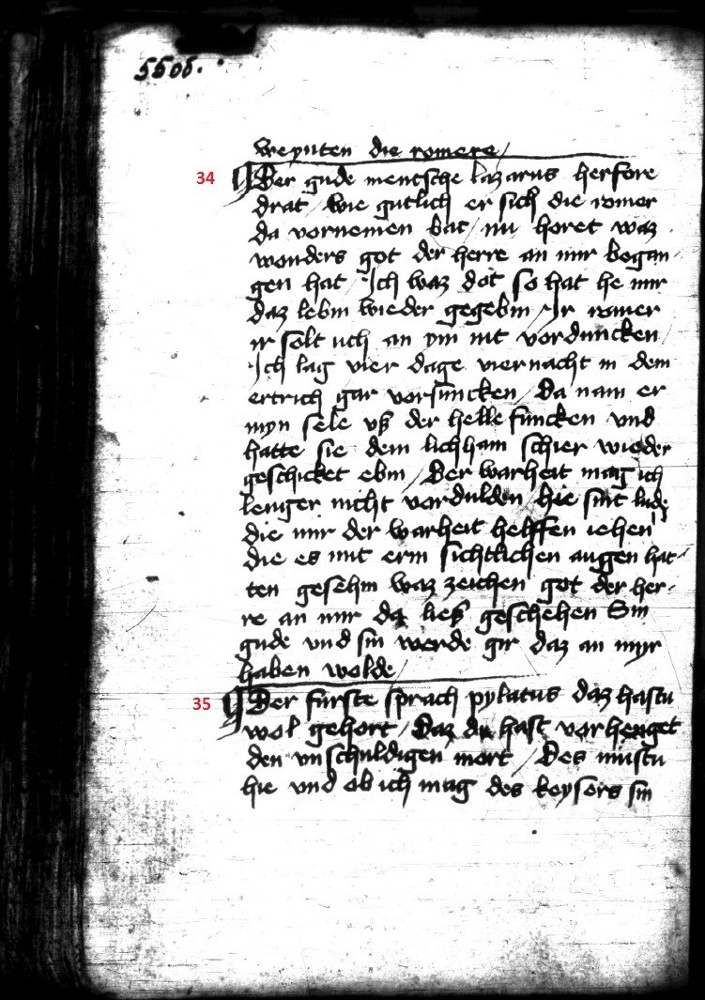 5506.
weynten die romere /
34 ¶ Der gude mentsche lazarus herfore
drat / wie gutlich er sich die romer
da vornemen bat / nu horet waz
wonders got der herre an mir began
gen hat / Ich waz dot so hat he mir
daz lebin wieder gegebin / Ir romer
ir solt uch an ym nit vorduncken
Ich lag vier dage vier nacht in dem
ertrich gar vorsuncken / Da nam er
myn sele uß der helle funcken und
hatte sie dem lichham schier wieder
geschicket ebin / Der warheit mag ich
lenger nicht vordulden hie sint lude
die mir der warheit helffen iehen
die es mit erin sichtlichen augen hat
ten gesehin waz zeichen got der her
re an mir da ließ geschehen Sin
gude und sin werde gir daz an myr
haben wolde /
35 ¶ Der furste sprach pylatus daz hastu
wol gehort / Daz du hast vorhenget
den unschuldigen mort / Des mustu
hie und ob ich mag des keysers sin